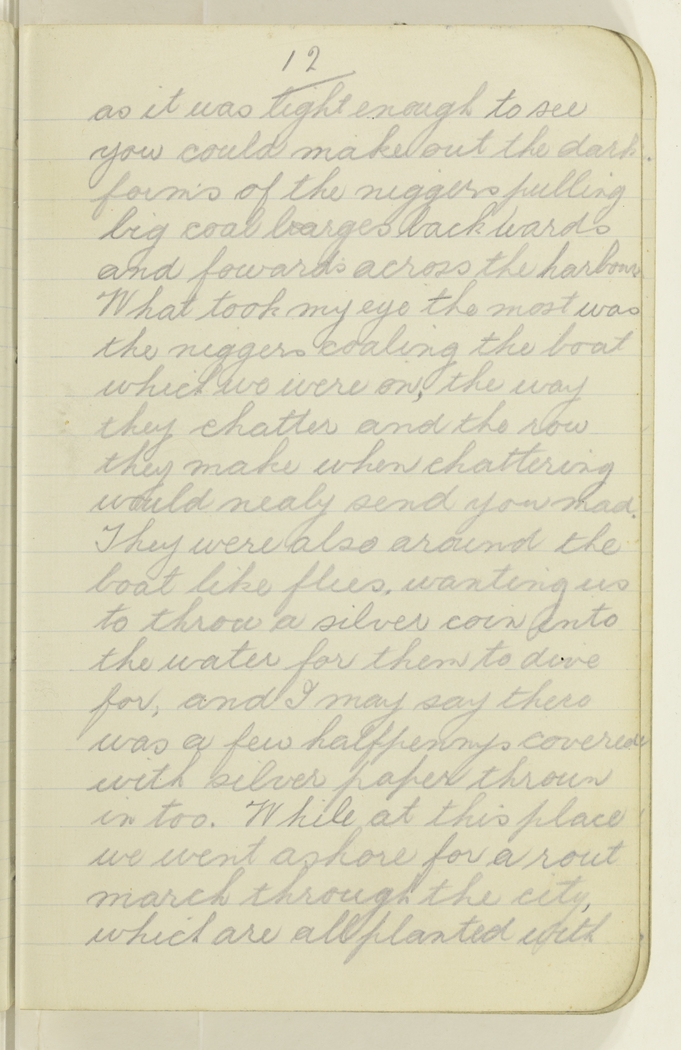 12
as it was light enough to see
you could make out the dark
forms of the niggers pulling
big coal barges backwards
and fowards across the harbour
What took my eye the most was
the niggers coaling the boat
which we were on, the way
they chatter and the row
they make when chattering
would nealy send you mad.
They were also around the
boat like flies, wanting us
to throw a silver coin into
the water for them to dive
for, and I may say there
was a few halfpennys covered
with silver paper thrown
in too. While at this place
we went ashore for a rout
march through the city,
which are all planted with